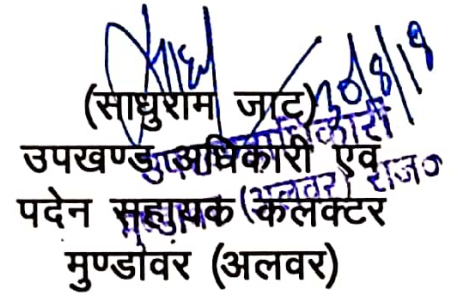 30/8/19
(साधुराम जाट)
उपखण्ड अधिकारी एवं
पदेन सहायक कलक्टर
मुण्डावर (अलवर)
उपखण्ड अधिकारी
(अलवर) राज०